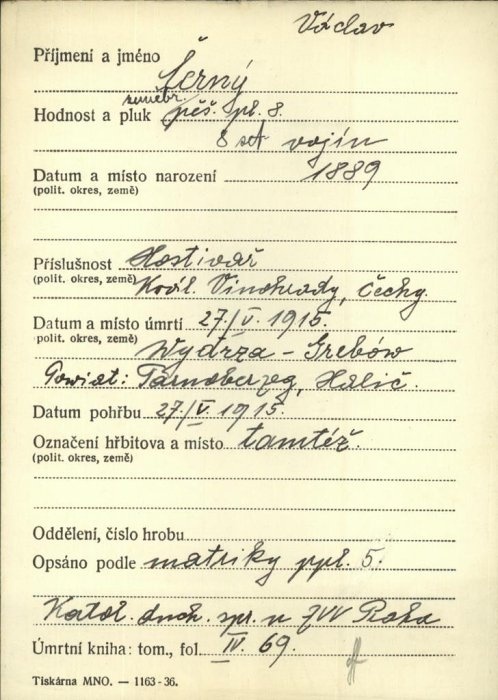 Václav
Příjmení a jméno Černý
zeměbr.
Hodnost a pluk pěš. pl. 8.
8 set vojín
Datum a místo narození 1889
(polit. okres, země)
Příslušnost Hostivař
(polit. okres, země) Král. Vinohrady, Čechy.
Datum a místo úmrtí 27./V. 1915.
polit. okres, země) Wydrza - Grebów
Powiat: Tarnoberzeg, Halič.
Datum pohřbu 27./V. 1915.
Označení hřbitova a místo tamtéž.
(polit. okres, země)
Oddělení, číslo hrobu
Opsáno podle matriky ppl. 5.
Katol. duch. spr. u ZVV Praha
Úmrtní kniha: tom., fol. IV. 69.
Tiskárna MNO. — 1163-36.